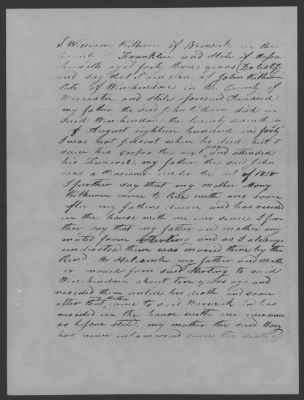 I William Kilburn of Warwick in the
County of Franklin and State of Massa
chusetts aged forty three years Do testify
and say that I am son of John Kilburn
late of Winchendon in the County of
Worcester and State aforesaid Deceased
my father the said John Kilburn died in
said Winchendon the twenty seventh
of August eighteen hundred and forty
I was not present when he died but I
seen his corpse the next and attended
his Funeral my father the said John
was a Pensioner under the act of 1818
I further say that my mother Mary
Kilburn came to live with me soon
after my fathers decease and has resided
in the house with me ever since I fur
ther say that my father and mother
from Sterling and as I always
understood them were married there by the
Revd Mr Holcomb my father and moth
er moved from said Sterling to said
Winchendon about ten years ago and
resided there until his death and soon
after that mother came to said Warwick and has
resided in the house with me
as before stated, my mother the said Mary
has never intermarried since the death of